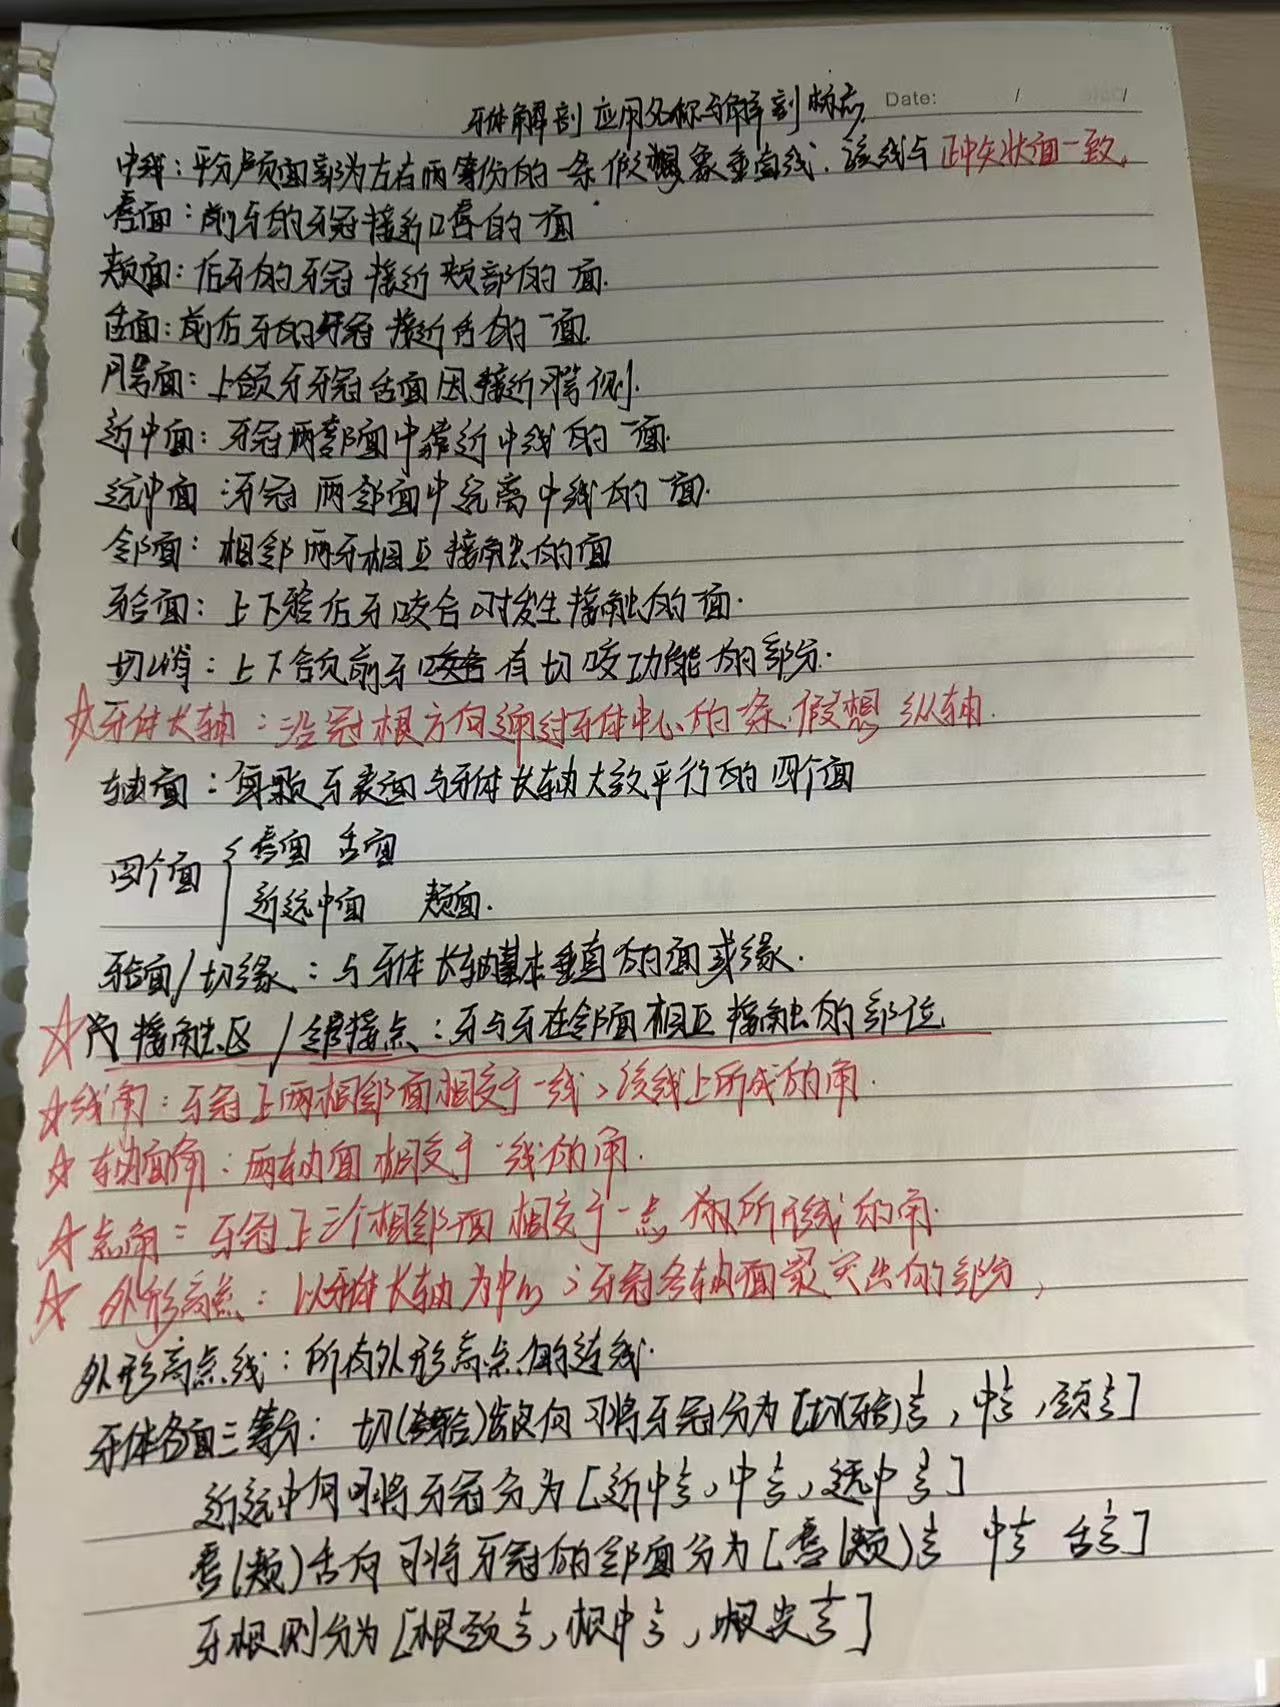 牙体解剖应用名称与解剖标志 Date: / /
中线：平分颅面部为左右两等份的一条假想象垂直线，该线与正中矢状面一致。
唇面：前牙的牙冠接近口唇的一面
颊面：后牙的牙冠接近颊部的一面.
舌面：前后牙的牙冠接近舌的一面.
腭面：上颌牙牙冠舌面因接近腭侧.
近中面：牙冠两邻面中靠近中线的一面.
远中面：牙冠两邻面中远离中线的一面.
邻面：相邻两牙相互接触的面
牙合面：上下颌后牙咬合时发生接触的一面.
切嵴：上下颌前牙咬合有切咬功能的部分.
☆牙体长轴：沿冠根方向通过牙体中心的一条假想纵轴.
轴面：每颗牙表面与牙体长轴大致平行的四个面
四个面{唇面 舌面
近远中面 颊面.
牙合面/切缘：与牙体长轴基本垂直的面或缘.
☆接触区/邻接点：牙与牙在邻面相互接触的部位
☆线角：牙冠上两相邻面相交于一线，该线上所成的角.
☆轴面角：两轴面相交于一线的角.
☆点角：牙冠上三个相邻面相交于一点所成的角.
☆外形高点：以牙体长轴为中心，牙冠各轴面最突出的部分，
外形高点线：所有外形高点的连线.
牙体各面三等分：切(牙合)龈向可将牙冠分为[切(牙合)⅓，中⅓，颈⅓]
近远中向可将牙冠分为[近中⅓，中⅓，远中⅓]
唇(颊)舌向可将牙冠的邻面分为[唇(颊)⅓ 中⅓ 舌⅓]
牙根则分为[根颈⅓，根中⅓，根尖⅓]